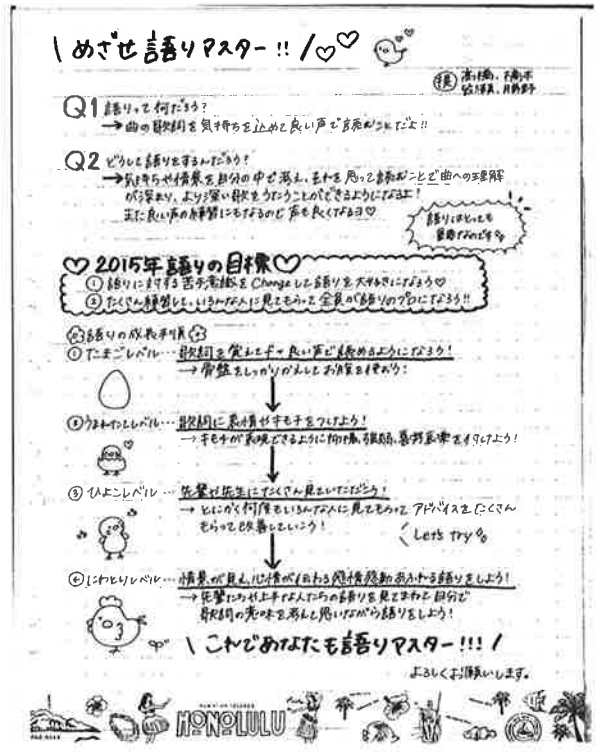 \ めざせ 語りマスター!! /
Q1 語りって何だろう?
→ 曲の歌詞を気持ちを込めて良い声で読むことだよ!!
Q2 どうして語りをするんだろう?
→気持ちや情景を自分の中で考え、それを思って読むことで曲への理解
が深まり、より深い歌をうたうことができるようになるよ!
また良い声の練習にもなるので声も良くなるヨ♡
語りはとっても
重要なのです
♡ 2015年語りの目標♡
① 語りに対する苦手意識をChangeして語りを大好きになろう♡
② たくさん練習して、いろんな人に見てもらって全員が語りのプロになろう!!
語りの成長手順
① たまごレベル… 歌詞を覚えてよ良い声で読めるようになろう!
→ 骨盤をしっかりかえしてお腹を使おう!
② うまれたてレベル… 歌詞に表情やキモチをつけよう!
→ キモチが表現できるように抑揚、強弱、喜怒哀楽をイタしよう!
③ ひよこレベル… 先輩や先生にたくさん見ていただこう!
→ とにかく何度もいろんな人に見てもらって アドバイスをたくさん
もらって改善していこう!
Let's try
④ にわとりレベル… 情景が見え、心情が伝わる感情感動あふれる語りをしよう!
→先輩たちや上手な人たちの語りを見てまねて自分で
歌詞の意味を考えて思いながら語りをしよう!
\ これであなたも語りマスター!!! /
よろしくお願いします。
HAWAIIAN ISLANDS
HONOLULU